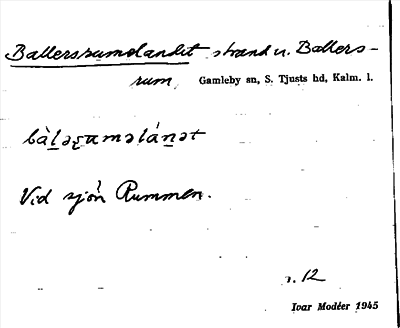 Ballersrumslandet strand v. Ballers-
rum, Gamleby sn, S. Tjusts hd, Kalm. l.
Vid sjön Rummen.
s. 12
Ivar Modéer 1945